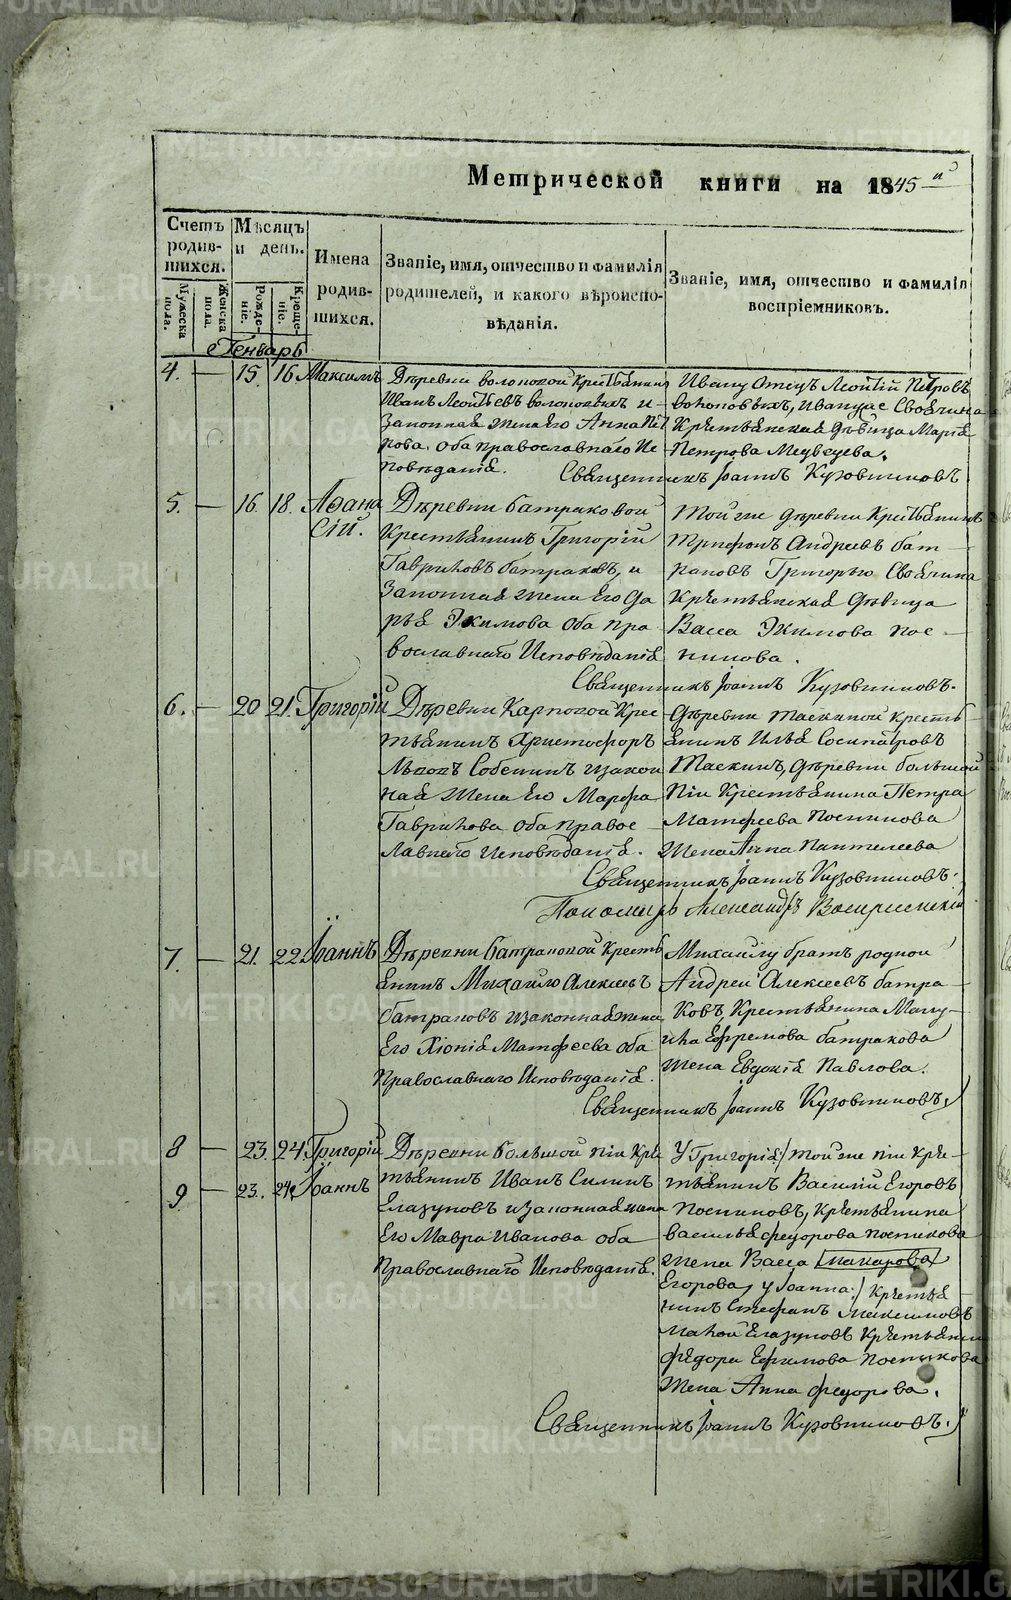 Метрической книги на 1845й
Счетъ родив- шихся.
Мѣсяцъ и день.
Имена родив- шихся.
Званіе, имя, отчество и фамилія родителей, и какого вѣроиспо- вѣданія.
Званіе, имя, отчество и фамилія воспріемниковъ.
Мужеска пола.
Женска пола.
Рожде- ніе.
Креще- ніе.
Генварь
4. — 15. 16 Максимъ
Деревни волоковой Крестьянинъ
Иванъ Леонтьевъ волоковыхъ и
Законная жена его Анна Пет
рова. Оба православнаго Ис
повѣданія.
Ивану Отецъ Леонтій Петровъ
Волоковыхъ, Ивануже Своячина
Крестьянская дѣвица Марѳа
Петрова Медведева.
Священникъ Іоаннъ Кузовниковъ
5. — 16. 18. Аѳана
сій.
Деревни батраковой
Крестьянинъ Григорій
Гавриловъ батраковъ, и
Законная жена Его Да
рья Экимова Оба пра
вославнаго Исповѣданія
Той же деревни Крестьянинъ
Трифонъ Андреевъ бат
раковъ Григорью Своячина
Крестьянская дѣвица
Васса Экимова пос—
никова.
Священникъ Іоаннъ Кузовниковъ.
6. — 20 21. Григорій
Деревни Карповой Крес
тьянинъ Христофоръ
Львовъ Собенинъ изакон
ная жена Его Марфа
Гаврилова Оба правос—
лавнаго Исповѣданія.
Деревни Таскиной кресть
янинъ Илья Сосипатровъ
Таскинъ, деревни большой
піи Крестьянина Петра
Матфеева Посникова
жена Анна Пантелеева
Священникъ Іоаннъ Кузовниковъ.
Пономарь Александръ Воскресенскій
7. — 21. 22. Іоаннъ
Деревни батраковой Кресть
янинъ Михайло Алексеевъ
батраковъ изаконнаяжена
Его Хіонія Матфеева оба
Православнаго Исповѣданія.
Михайлу братъ родной
Андреи Алексеевъ батра—
ковъ, Крестьянина Ману—
ила Ефремова батракова
жена Евдокія Павлова.
Священникъ Іоаннъ Кузовниковъ,
8 — 23. 24 Григорій
9. — 23. 24. Іоаннъ
Деревни большой піи Кре
стьянинъ Иванъ Силинъ
Елазуновъ изаконная жена
Его Мавра Иванова оба
Православнаго Исповѣданія.
У Григорія:/ той же піи Кре—
стьянинъ Василій Егоровъ
Посниковъ, крестьянина
василья федорова посникова
жена Васса макарова
Егорова, у Іоанна:/ крестья—
нинъ Стефанъ Максимовъ
малой Елазуновъ Крестьянин
федора Ефимова Посникова
жена Анна федорова.
Священникъ Іоаннъ Кузовниковъ.
METRIKI.GASO-URAL.RU